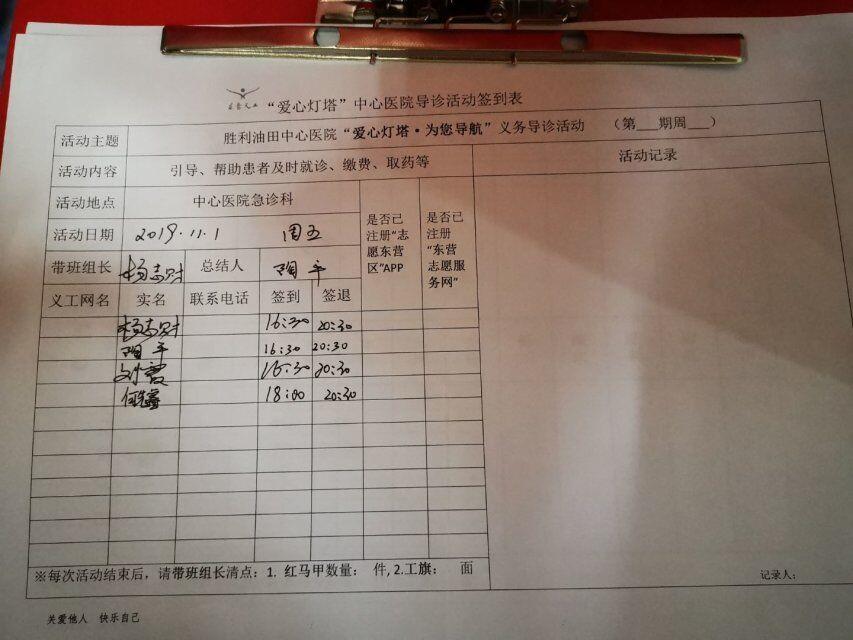 “爱心灯塔”中心医院导诊活动签到表
活动主题 胜利油田中心医院“爱心灯塔·为您导航”义务导诊活动 （第___期周___）
活动内容 引导、帮助患者及时就诊、缴费、取药等 活动记录
活动地点 中心医院急诊科
是否已注册“志愿东营区”APP
是否已注册“东营志愿服务网”
活动日期 2019.11.1 周五
带班组长 杨志财 总结人 陶平
义工网名 实名 联系电话 签到 签退
杨志财 16:30 20:30
陶平 16:30 20:30
刘霞 16:30 20:30
18:00 20:30
※每次活动结束后，请带班组长清点：1. 红马甲数量： 件, 2.工旗： 面
记录人：
关爱他人 快乐自己